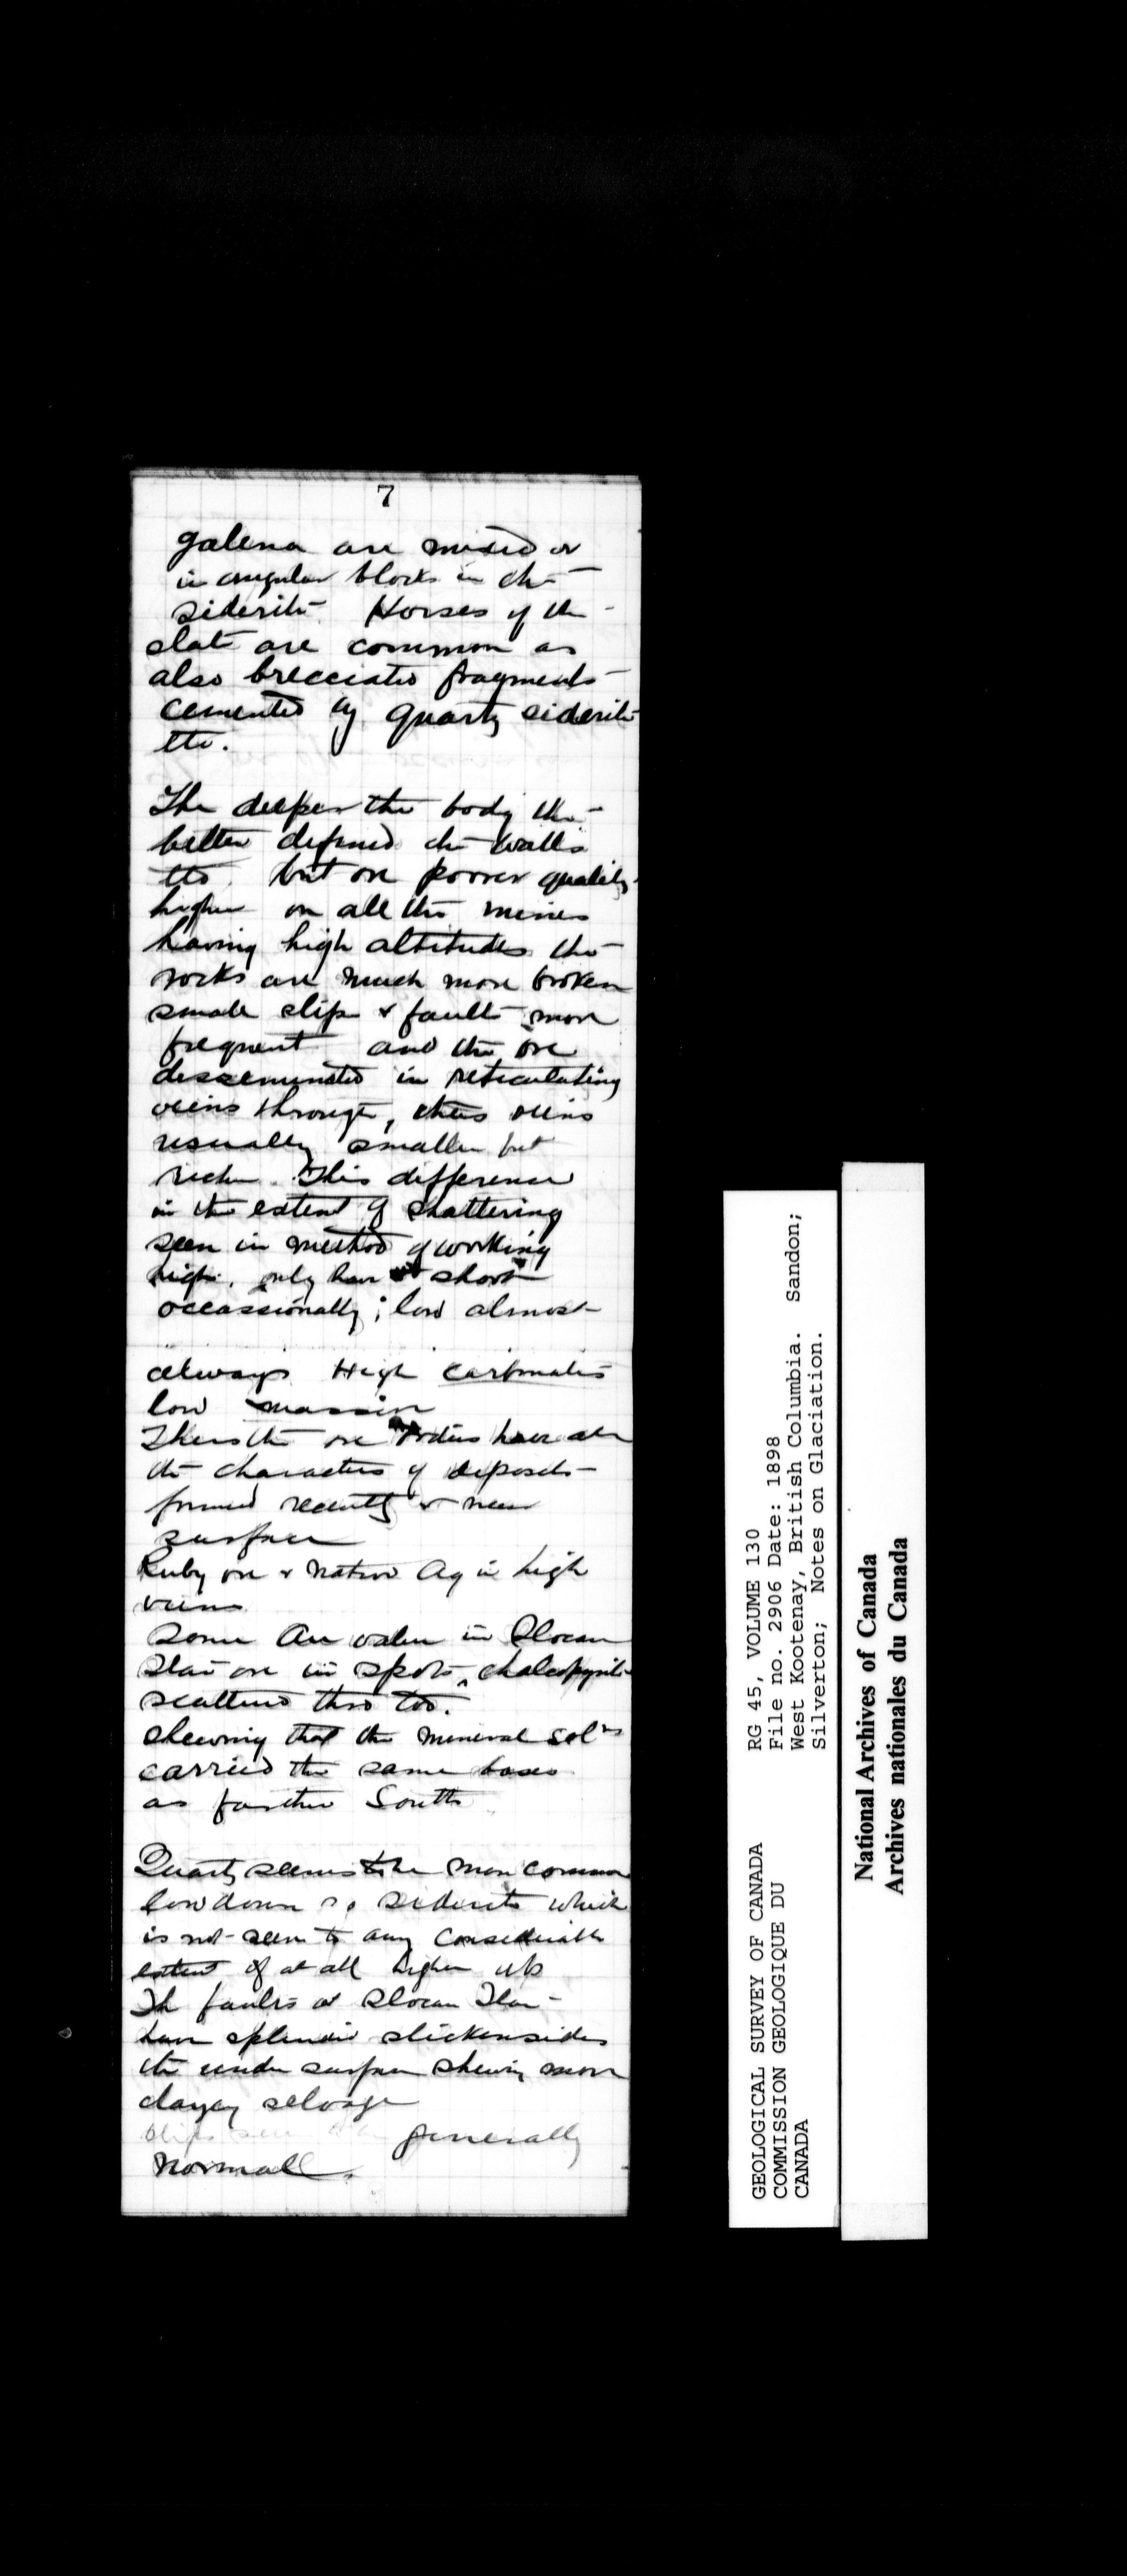 7
galena are mixed or
in angular blocks in the
siderite Horses of the
slate are common as
also brecciated fragments
cemented by quartz siderite
etc.
The deeper the body the
better defined the walls
etc. but ore poorer quality
higher on all the mines
having high altitudes the
rocks are much more broken
small slips & faults more
frequent and the ore
disseminated in reticulating
veins through, these veins
usually smaller but
richer. This difference
in the extent of shattering
seen in method of working
high. only have to shoot
occassionally; low almost
always High carbonates
low massive
Thus the ore bodies have all
the characters of deposits
formed recently & near
surface
Ruby ore & native Ag in high
veins
Some Au value in Slocan
Star ore in spots, chalcopyrite
scattered thro too.
shewing that the mineral solns
carried the same bases
as farther South
Quartz seems to be more common
low down so siderite which
is not seen to any considerable
extent if at all higher up
The faults at Slocan Star
have splendid slickensides
the under surface shewing more
clayey selvage
slips seem generally
normal.
GEOLOGICAL SURVEY OF CANADA
COMMISSION GEOLOGIQUE DU
CANADA
RG 45, VOLUME 130
File no. 2906 Date: 1898
West Kootenay, British Columbia. Sandon;
Silverton; Notes on Glaciation.
National Archives of Canada
Archives nationales du Canada